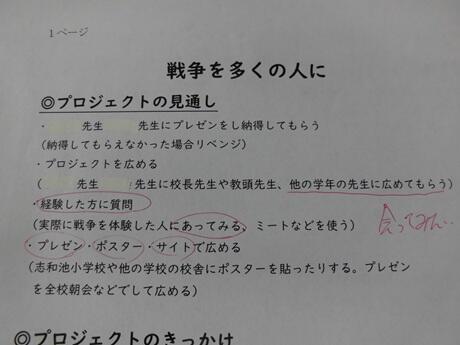 1ページ
戦争を多くの人に
◎プロジェクトの見通し
・ 先生 先生にプレゼンをし納得してもらう
(納得してもらえなかった場合リベンジ)
・プロジェクトを広める
( 先生 先生に校長先生や教頭先生、他の学年の先生に広めてもらう)
・経験した方に質問
(実際に戦争を体験した人にあってみる、ミートなどを使う)
・プレゼン・ポスター・サイトで広める
(志和池小学校や他の学校の校舎にポスターを貼ったりする。プレゼン
を全校朝会などでして広める)
◎プロジェクトのきっかけ